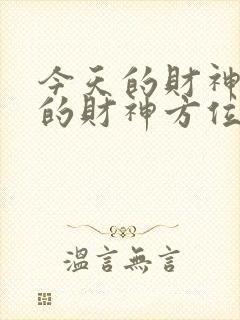 今天的財神
的財神方位
溫言無言